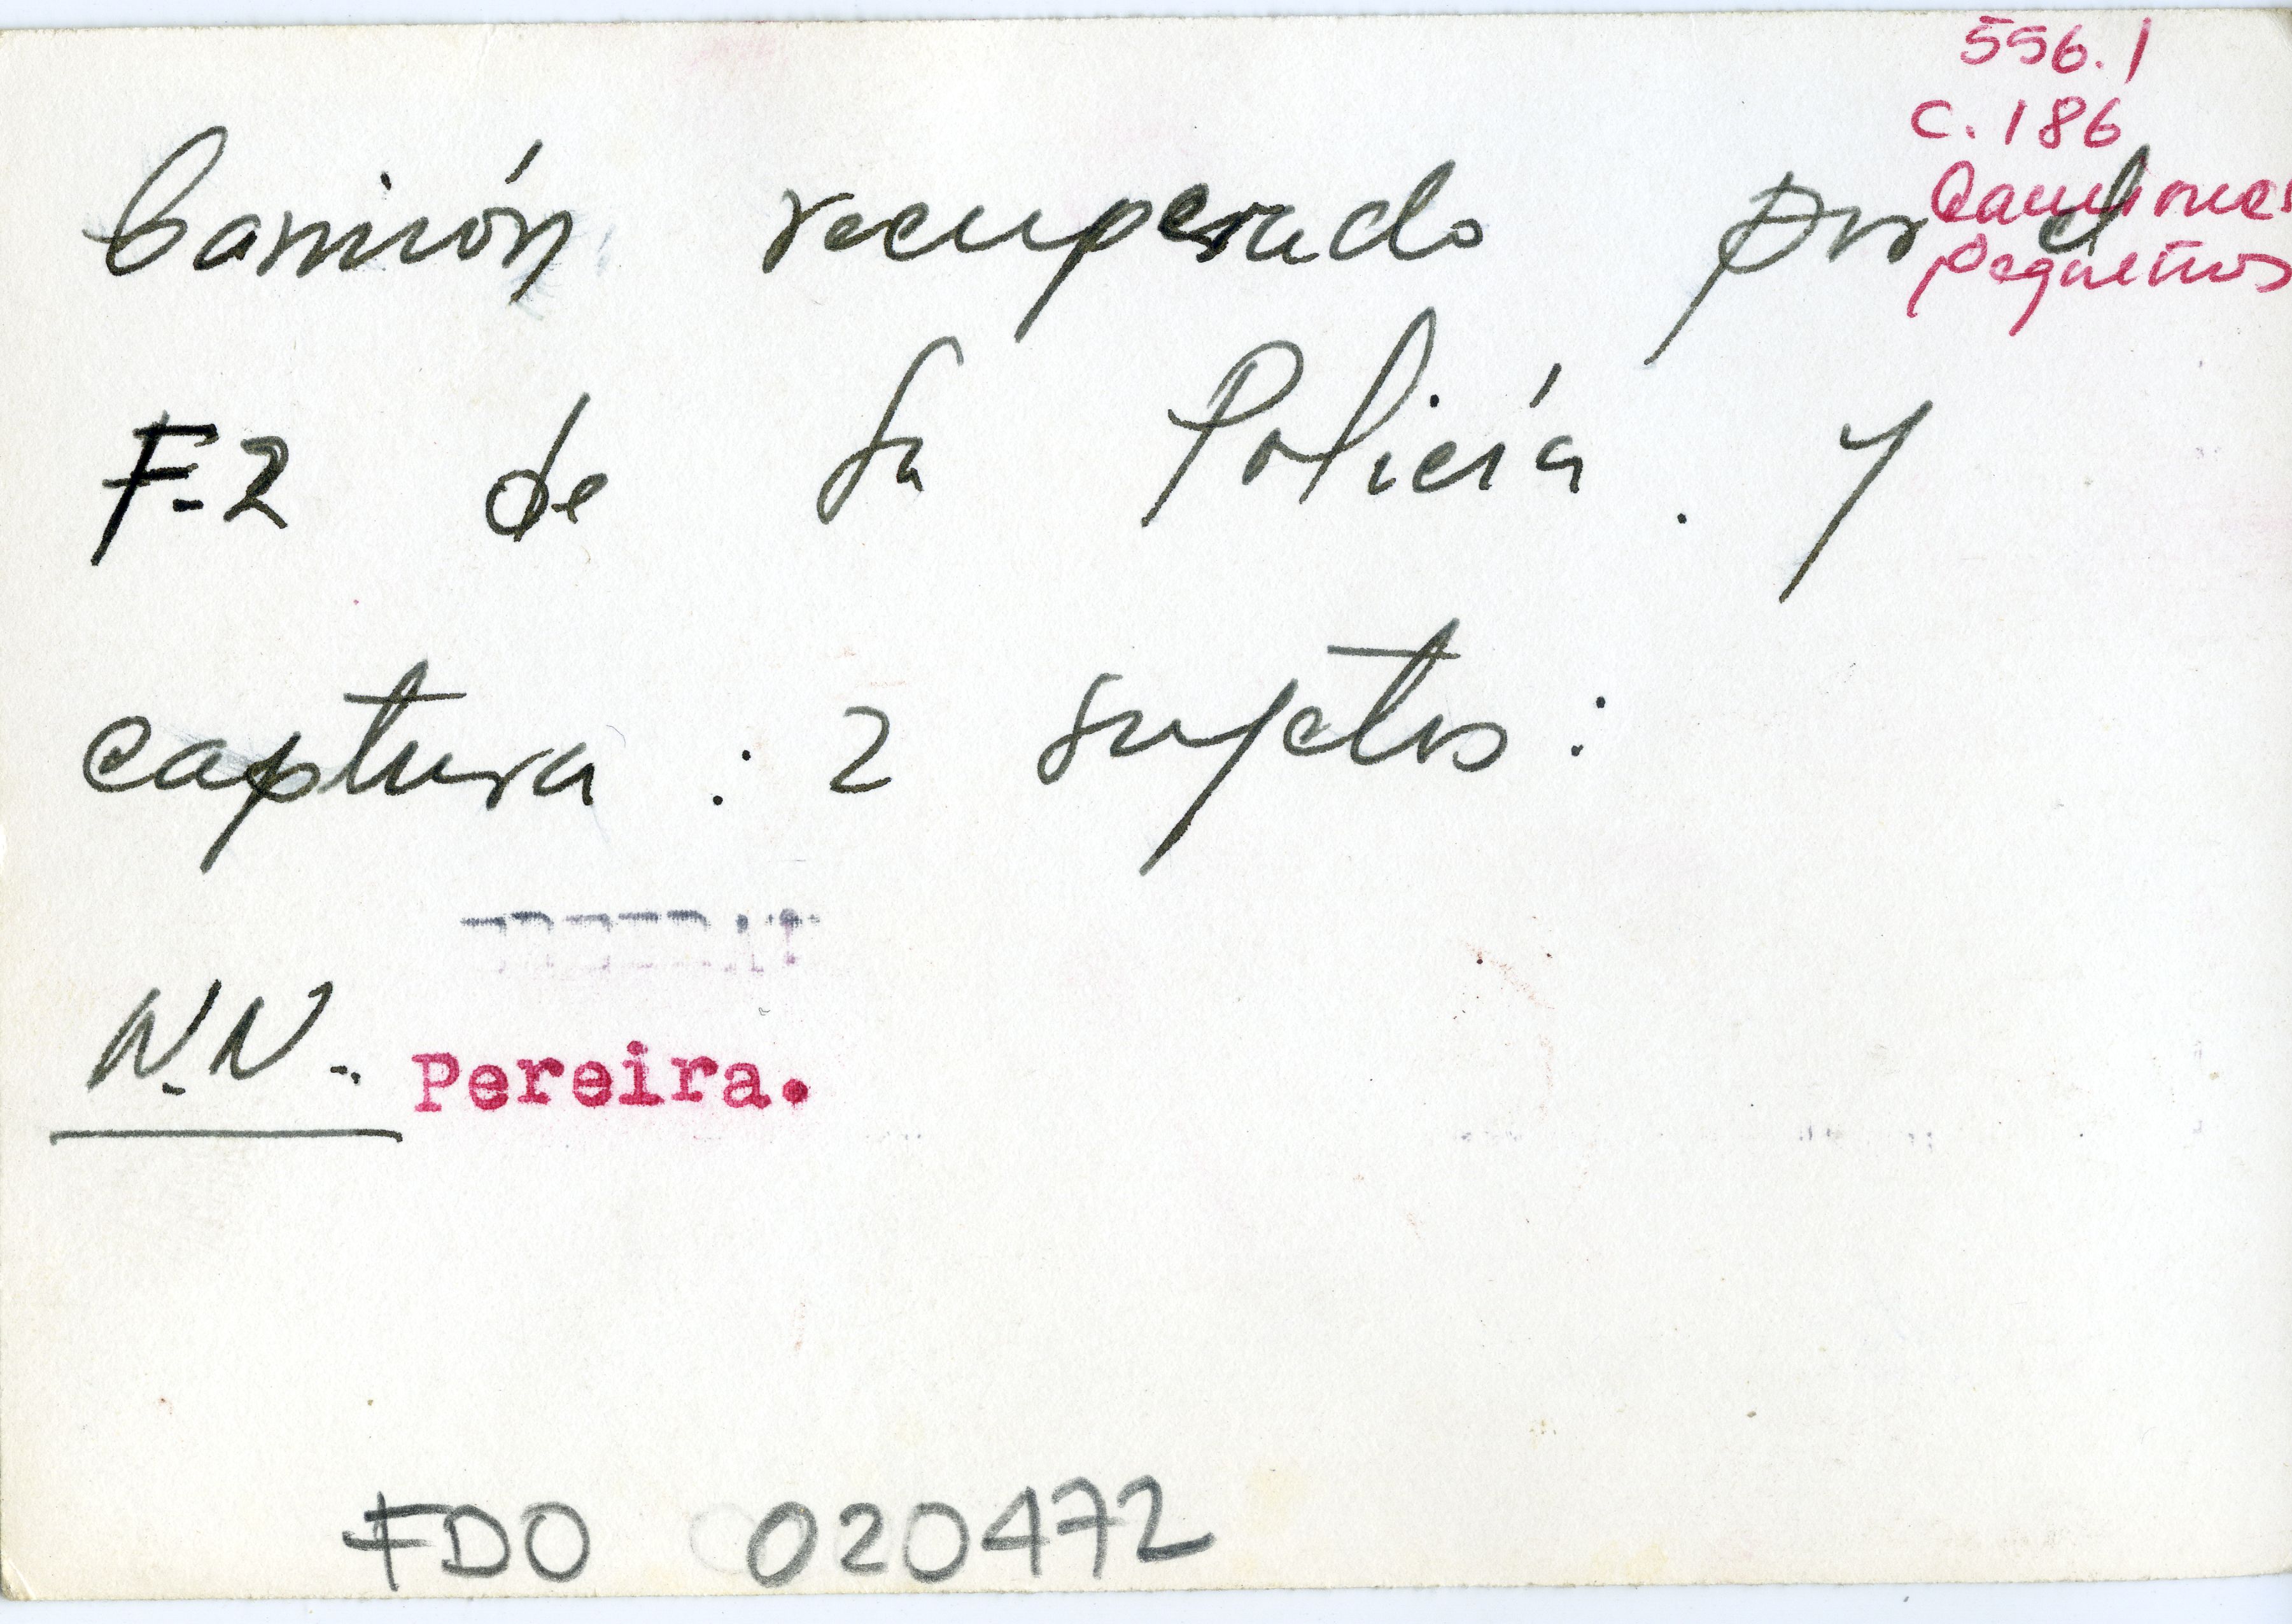 556.1
C.186
Camiones
Pequeños
Camión recuperado por el
F-2 de la Policía. Y
captura: 2 sujetos:
N.N.. Pereira.
FDO 020472